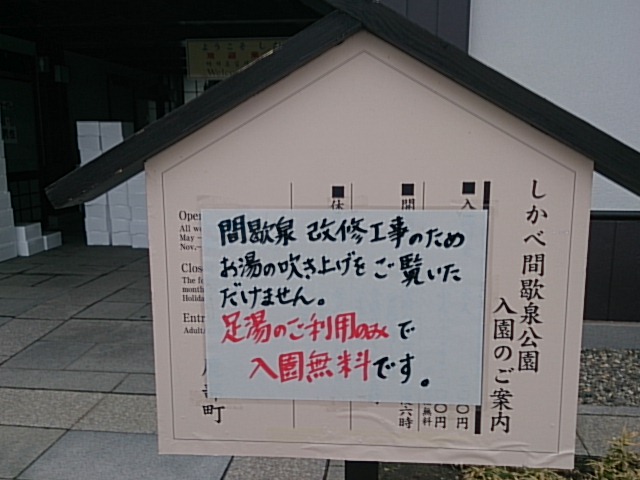 ようこそ
しかべ間歇泉公園
入園のご案内
■入
■開
■休
〇円
〇円
無料
六時
町
Open
All w
May –
Nov.–
Close
The fo
month
Holida
Entr
Adult
間歇泉 改修工事のため
お湯の吹き上げをご覧いた
だけません。
足湯のご利用のみで
入園無料です。